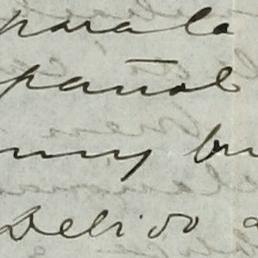 para la
pañol
muy bu
Debido a